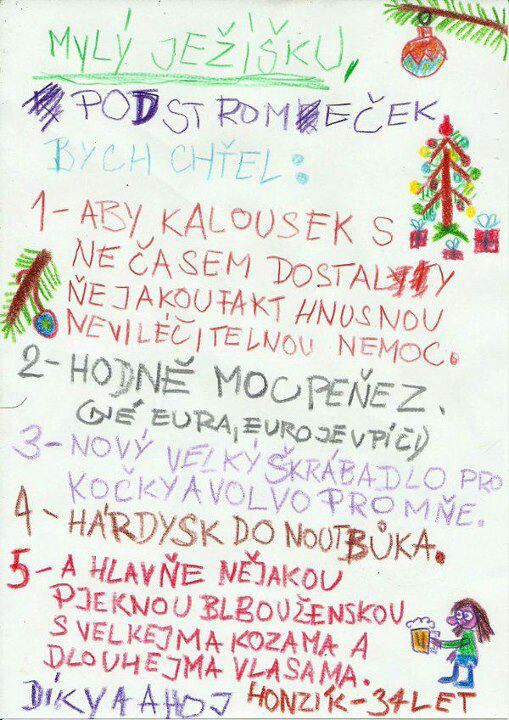 MYLÝ JEŽÍŠKU,
POD STROMEČEK
BYCH CHŤEL:
1-ABY KALOUSEK S
NEČASEM DOSTALY
ŇEJAKOU FAKT HNUSNOU
NEVILÉČITELNOU NEMOC.
2-HODNĚ MOC PEŇEZ.
(NÉ EURA, EURO JE V PÍČI)
3-NOVÝ VELKÝ ŠKRÁBADLO PRO
KOČKY A VOLVO PRO MŇE.
4-HÁRDYSK DO NOUTBŮKA.
5-A HLAVŇE NĚJAKOU
PJEKNOU BLBOUŽENSKOU
S VELKEJMA KOZAMA A
DLOUHEJMA VLASAMA.
DÍKY A AHOJ HONZÍK-34 LET